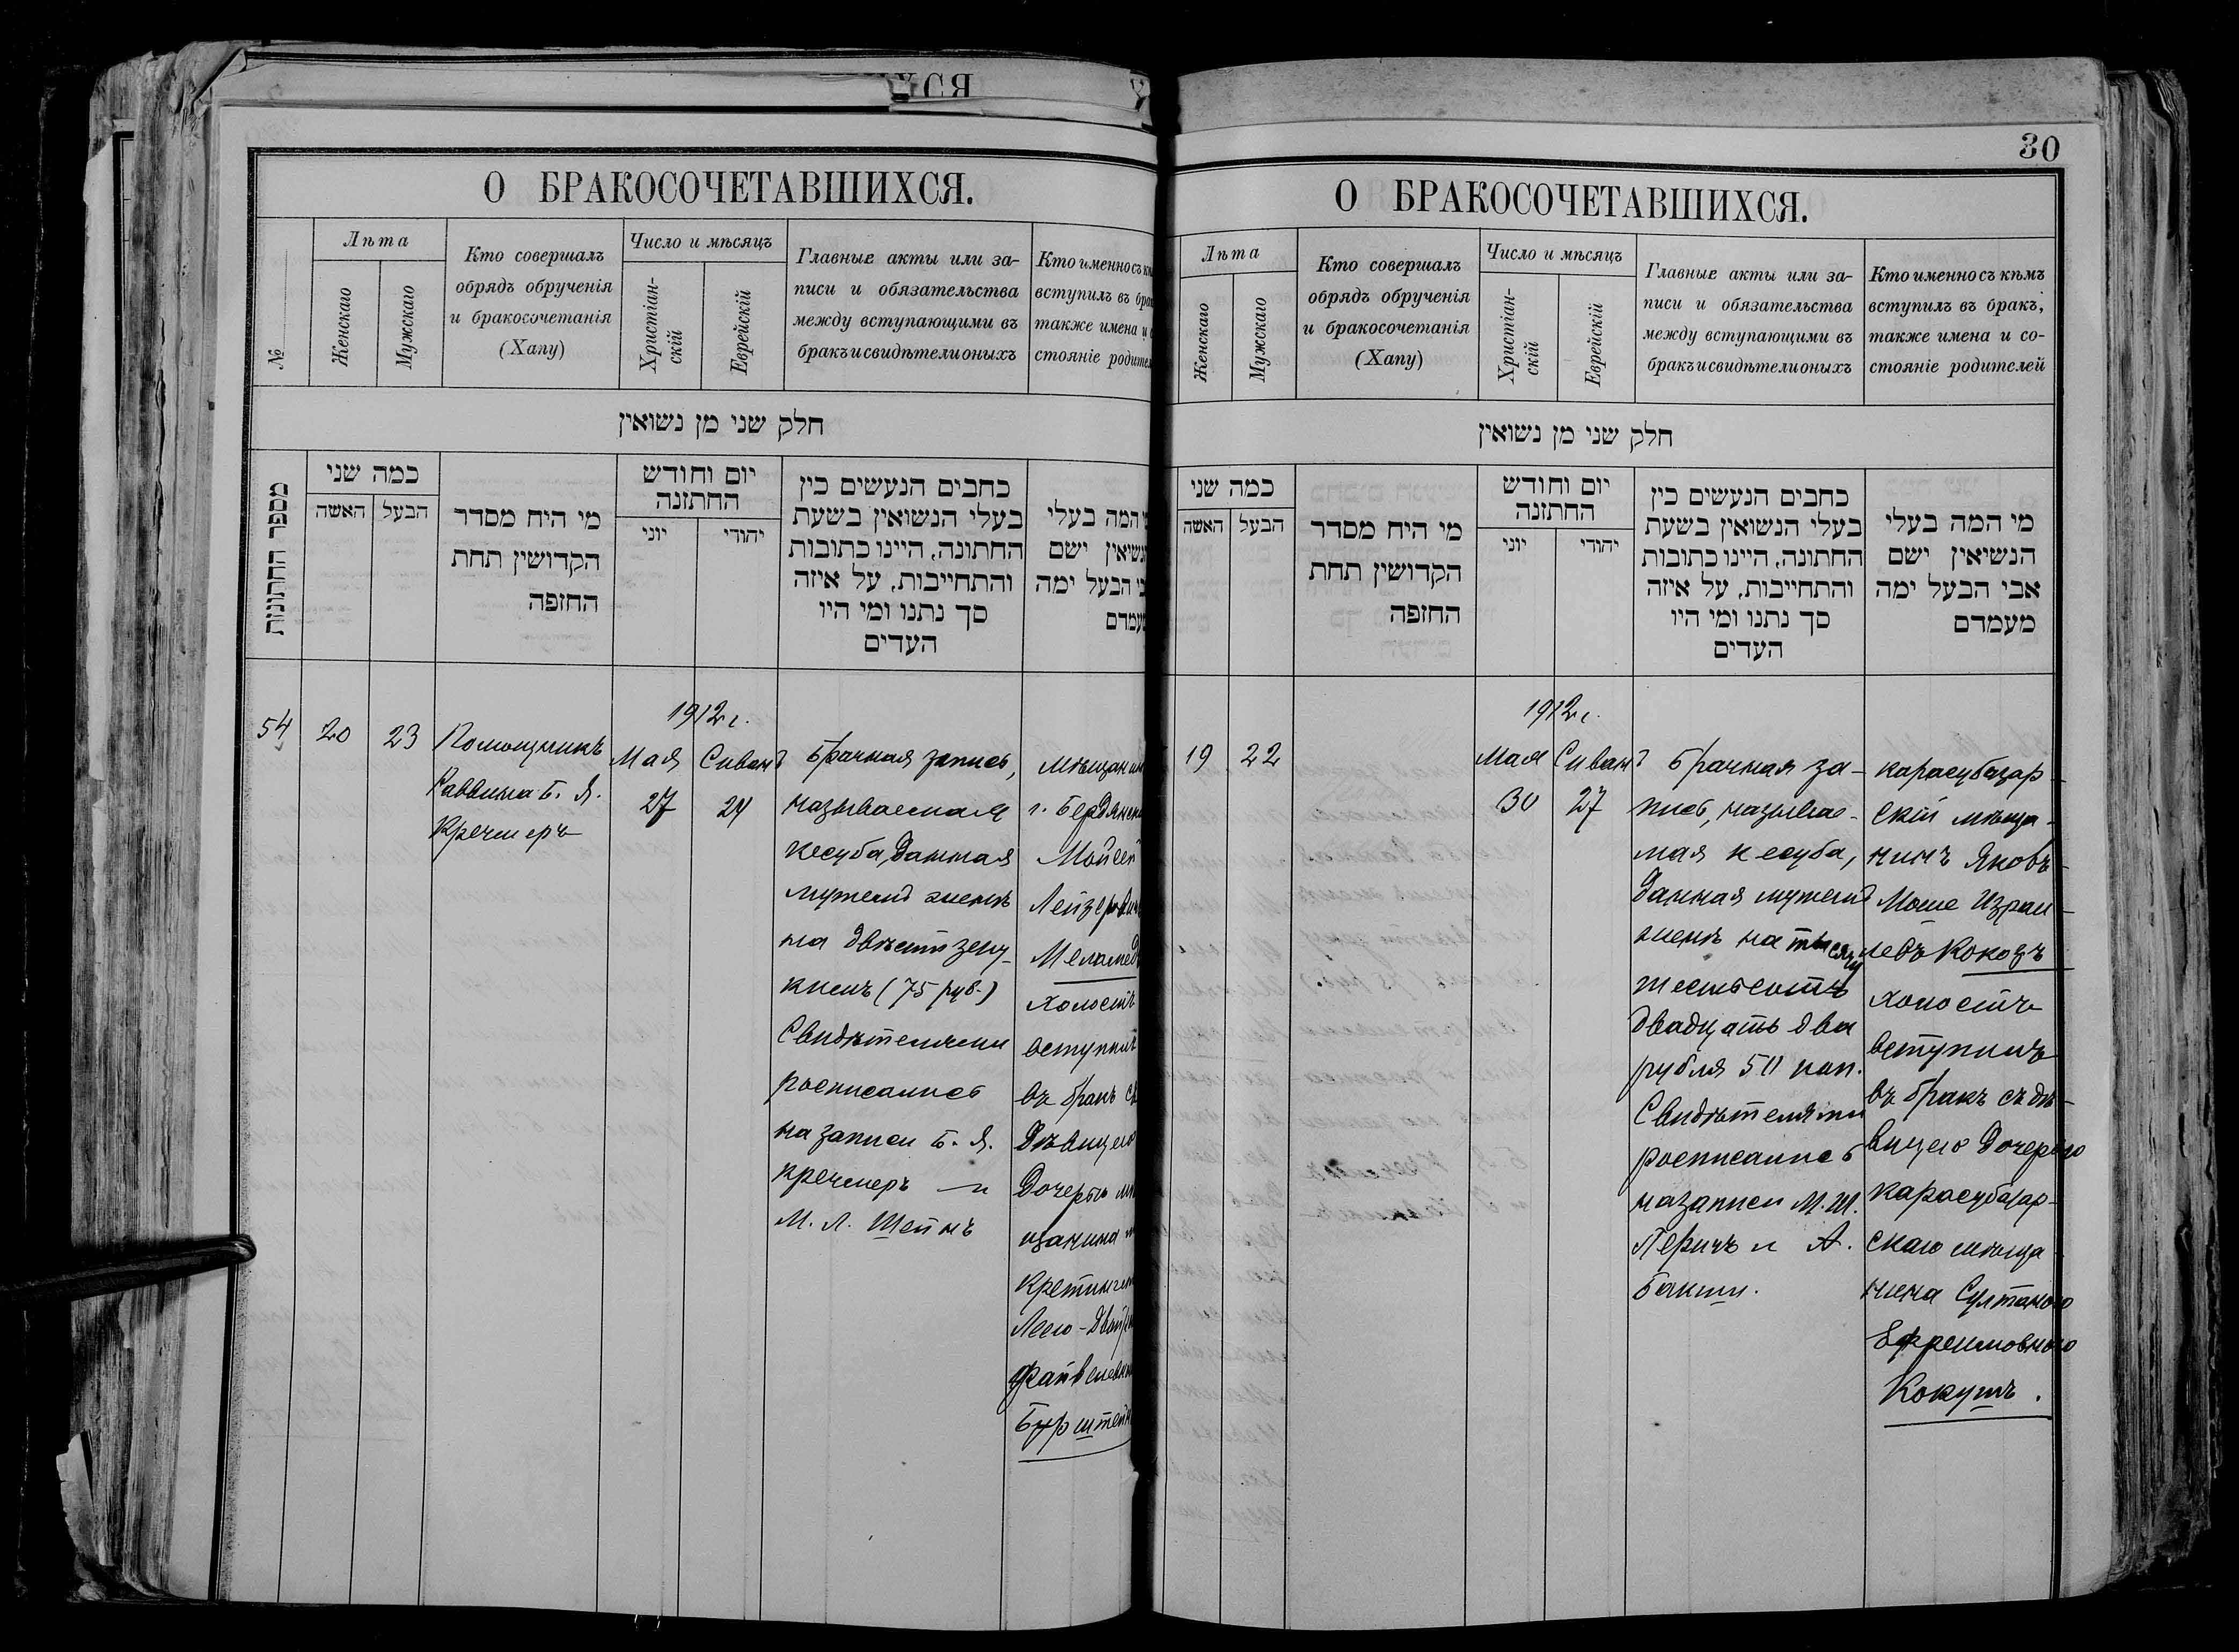 О БРАКОСОЧЕТАВШИХСЯ.
№
Лѣта
Женскаго
Мужскаго
Кто совершалъ
обрядъ обрученія
и бракосочетанія
(Хапу)
Число и мѣсяцъ
Христіан-
скій
Еврейскій
Главные акты или за-
писи и обязательства
между вступающими въ
бракъ и свидѣтели оныхъ
Кто именно съ
вступилъ въ
также имена и
стояніе
חלק שני מן נשואין
מספר החתונות
כמה שני
האשה
הבעל
מי היח מסדר
הקדושין תחת
החופה
יום וחודש
החתונה
יוני
יהודי
כתבים הנעשים בין
בעלי הנשואין בשעת
החתונה, היינו כתובות
והתחייבות, על איזה
סך נתנו ומי היו
העדים
המה בעלי
ישם
הבעל ימה
54
20
23
Помощникъ
Раввина Б. Я.
Кречмеръ
1912 г.
Мая
27
Сиванъ
24
Брачная запись,
называемая
кесуба, данная
мужемъ женѣ
на двѣсти зеку-
кимъ (75 руб.)
Свидѣтелями
росписались
на записи Б. Я.
Кречмеръ и
М. Л. Шейнъ
г.
Мойсей
холостъ
вступилъ
въ бракъ
дѣвицею
Дочерью
30
О БРАКОСОЧЕТАВШИХСЯ.
Лѣта
Женскаго
Мужскаго
Кто совершалъ
обрядъ обрученія
и бракосочетанія
(Хапу)
Число и мѣсяцъ
Христіан-
скій
Еврейскій
Главные акты или за-
писи и обязательства
между вступающими въ
бракъ и свидѣтели оныхъ
Кто именно съ кѣмъ
вступилъ въ бракъ,
также имена и со-
стояніе родителей
חלק שני מן נשואין
כמה שני
האשה
הבעל
מי היח מסדר
הקדושין תחת
החופה
יום וחודש
החתונה
יוני
יהודי
כתבים הנעשים בין
בעלי הנשואין בשעת
החתונה, היינו כתובות
והתחייבות, על איזה
סך נתנו ומי היו
העדים
מי המה בעלי
הנשיאין ישם
אבי הבעל ימה
מעמדם
19
22
1912 г.
Мая
30
Сиванъ
27
Брачная за-
пись, называе-
мая кесуба,
данная мужемъ
женѣ на тысячу
шестьсотъ
двадцать два
рубля 50 коп.
Свидѣтелями
росписались
на записи М. Ш.
Перичъ и А.
Бакши.
карасубазар-
скій мѣща-
нинъ Яковъ-
Моше Израи-
левъ Кокозъ
холостъ
вступилъ
въ бракъ съ дѣ-
вицею Дочерью
карасубазар-
скаго мѣща-
нина Султаною
Ефремовною
Кокушъ.